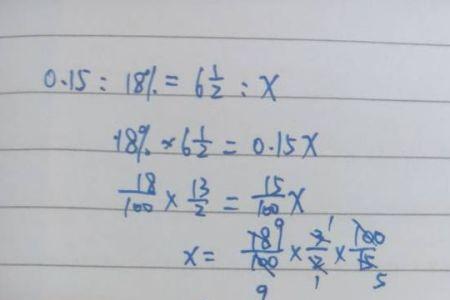 0.15 : 18% = 6 1/2 : x
18% × 6 1/2 = 0.15x
18/100 × 13/2 = 15/100 x
x = 18/100 × × 100/15
9 1
9 1 5